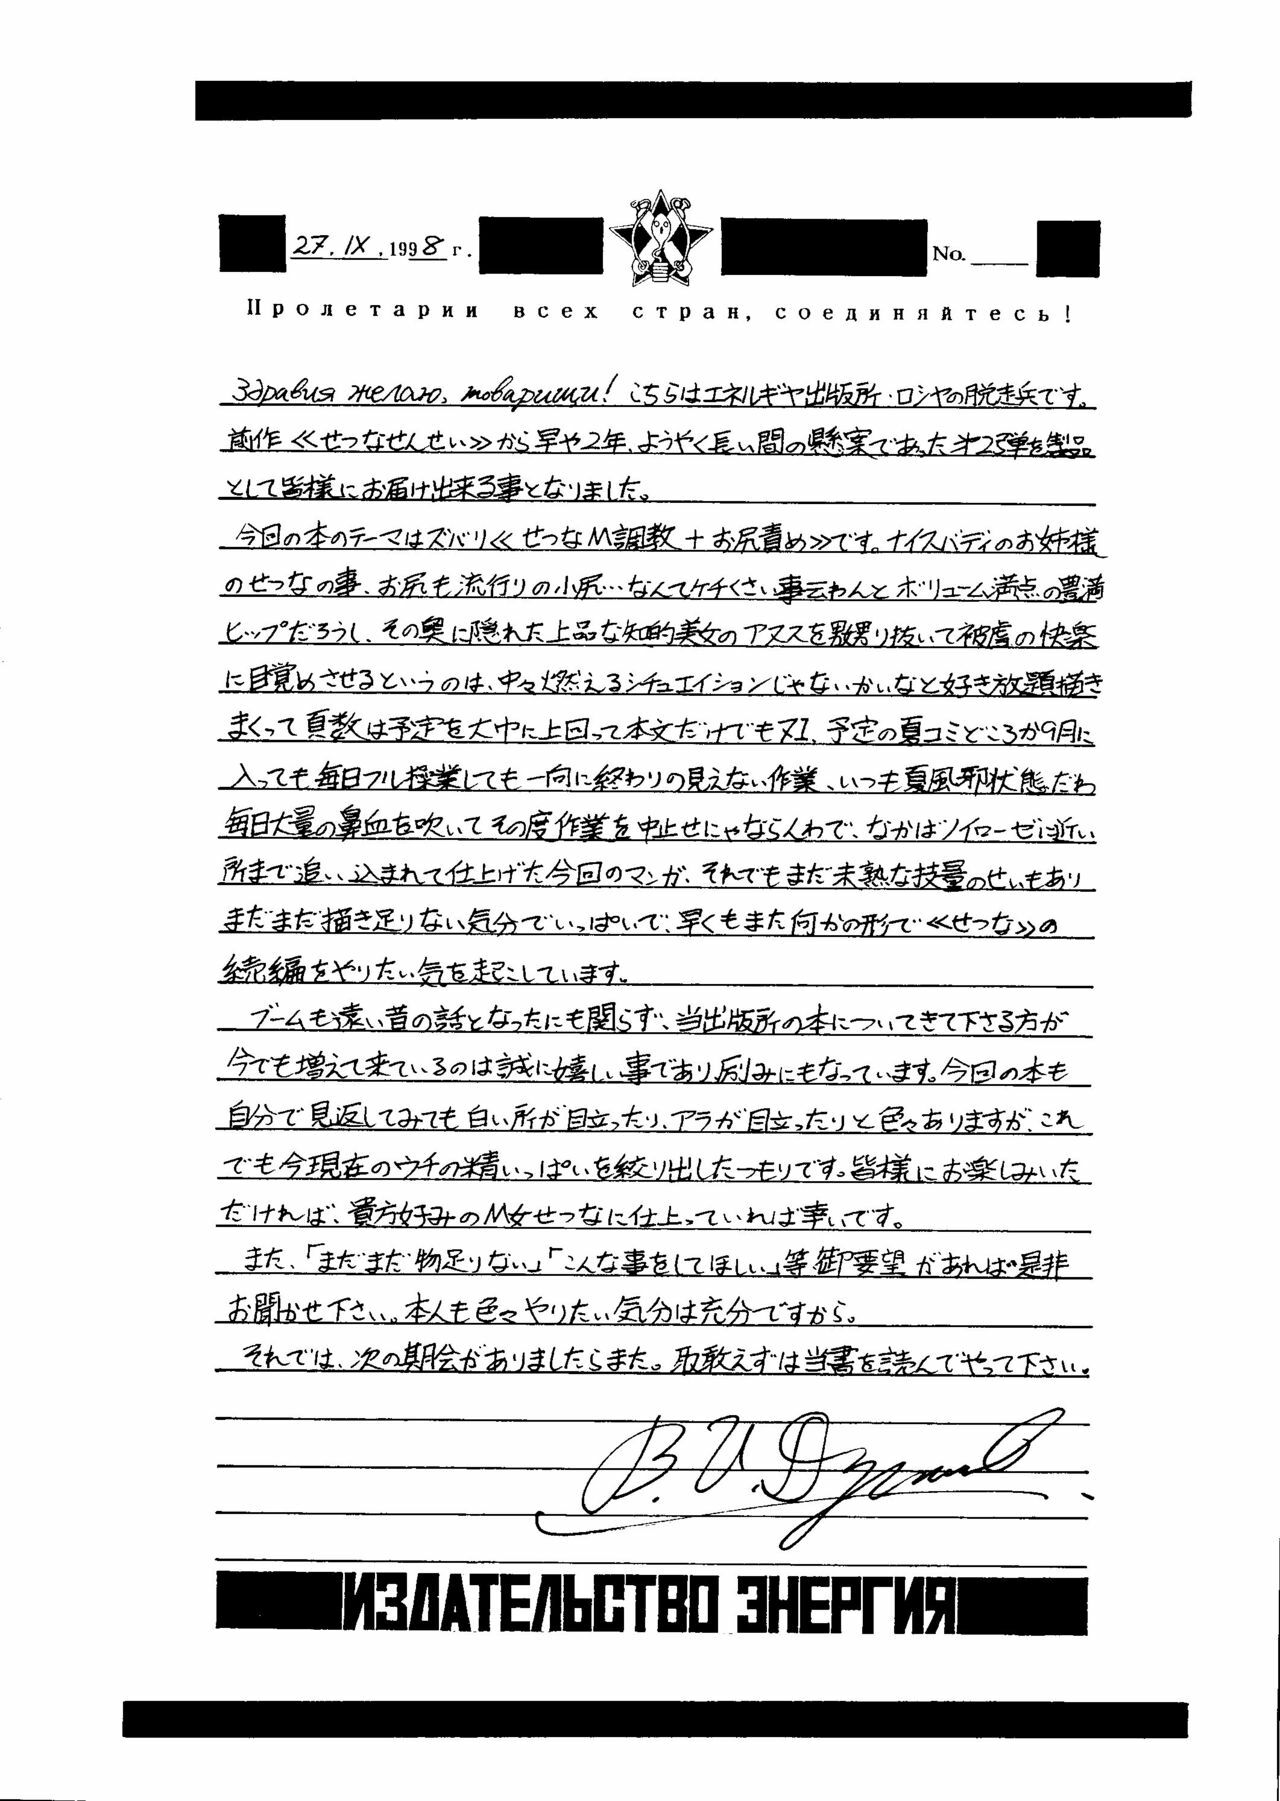 27. IX, 1998 г.
No.
Пролетарии всех стран, соединяйтесь!
Здравия желаю, товарищи! こちらはエネルギヤ出版所・ロシヤの脱走兵です。
前作≪せつなせんせい≫から早や2年、ようやく長い間の懸案であった第2弾を製品
として皆様にお届け出来る事となりました。
今回の本のテーマはズバリ≪せつなM調教+お尻責め≫です。ナイスバディのお姉様
のせつなの事、お尻も流行りの小尻…なんてケチくさい事云わんとボリューム満点の豊満
ヒップだろうし、その奥に隠れた上品な知的美女のアヌスを嬲り抜いて被虐の快楽
に目覚めさせるというのは、中々燃えるシチュエイションじゃないかいなと好き放題描き
まくって頁数は予定を大中に上回って本文だけでも、予定の夏コミどころか9月に
入っても毎日フル操業しても一向に終わりの見えない作業、いつも夏風邪状態だわ
毎日大量の鼻血を吹いてその度作業を中止せにゃならんわで、なかばノイローゼに近い
所まで追い込まれて仕上げた今回のマンガ、それでもまだ未熟な技量のせいもあり
まだまだ描き足りない気分でいっぱいで、早くもまた何かの形で≪せつな≫の
続編をやりたい気を起こしています。
ブームも遠い昔の話となったにも関らず、当出版所の本についてきて下さる方が
今でも増えて来ているのは誠に嬉しい事であり励みにもなっています。今回の本も
自分で見返してみても白い所が目立ったり、アラが目立ったりと色々ありますが、これ
でも今現在のウチの精いっぱいを絞り出したつもりです。皆様にお楽しみいた
だければ、貴方好みのM女せつなに仕上っていれば幸いです。
また、「まだまだ物足りない」「こんな事をしてほしい」等御要望があれば是非
お聞かせ下さい。本人も色々やりたい気分は充分ですから。
それでは、次の期会がありましたらまた。取敢えずは当書を読んでやって下さい。
ИЗДАТЕЛЬСТВО ЭНЕРГИЯ